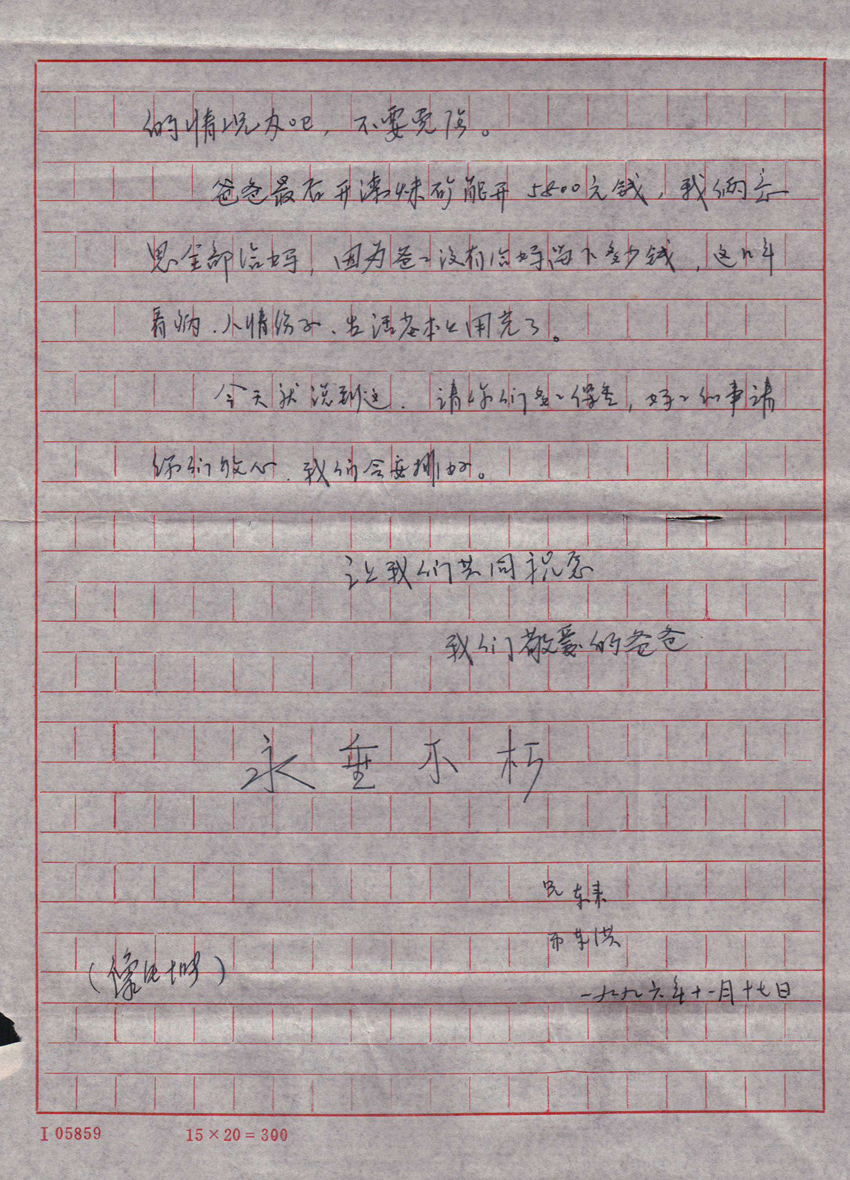 的情况办吧，不要免除。
爸爸最后开滦煤矿能开5800元钱，我俩意
思全部给妈，因为爸〻没有给妈留下多少钱，这几年
看病、人情份子、生活基本上用完了。
今天就说到这。请你们多〻保重，妈〻的事请
你们放心，我们会安排好。
让我们共同祝愿
我们敬爱的爸爸
永垂不朽
兄东来
东洪
一九九六年十一月十七日
I 05859
15×20=300